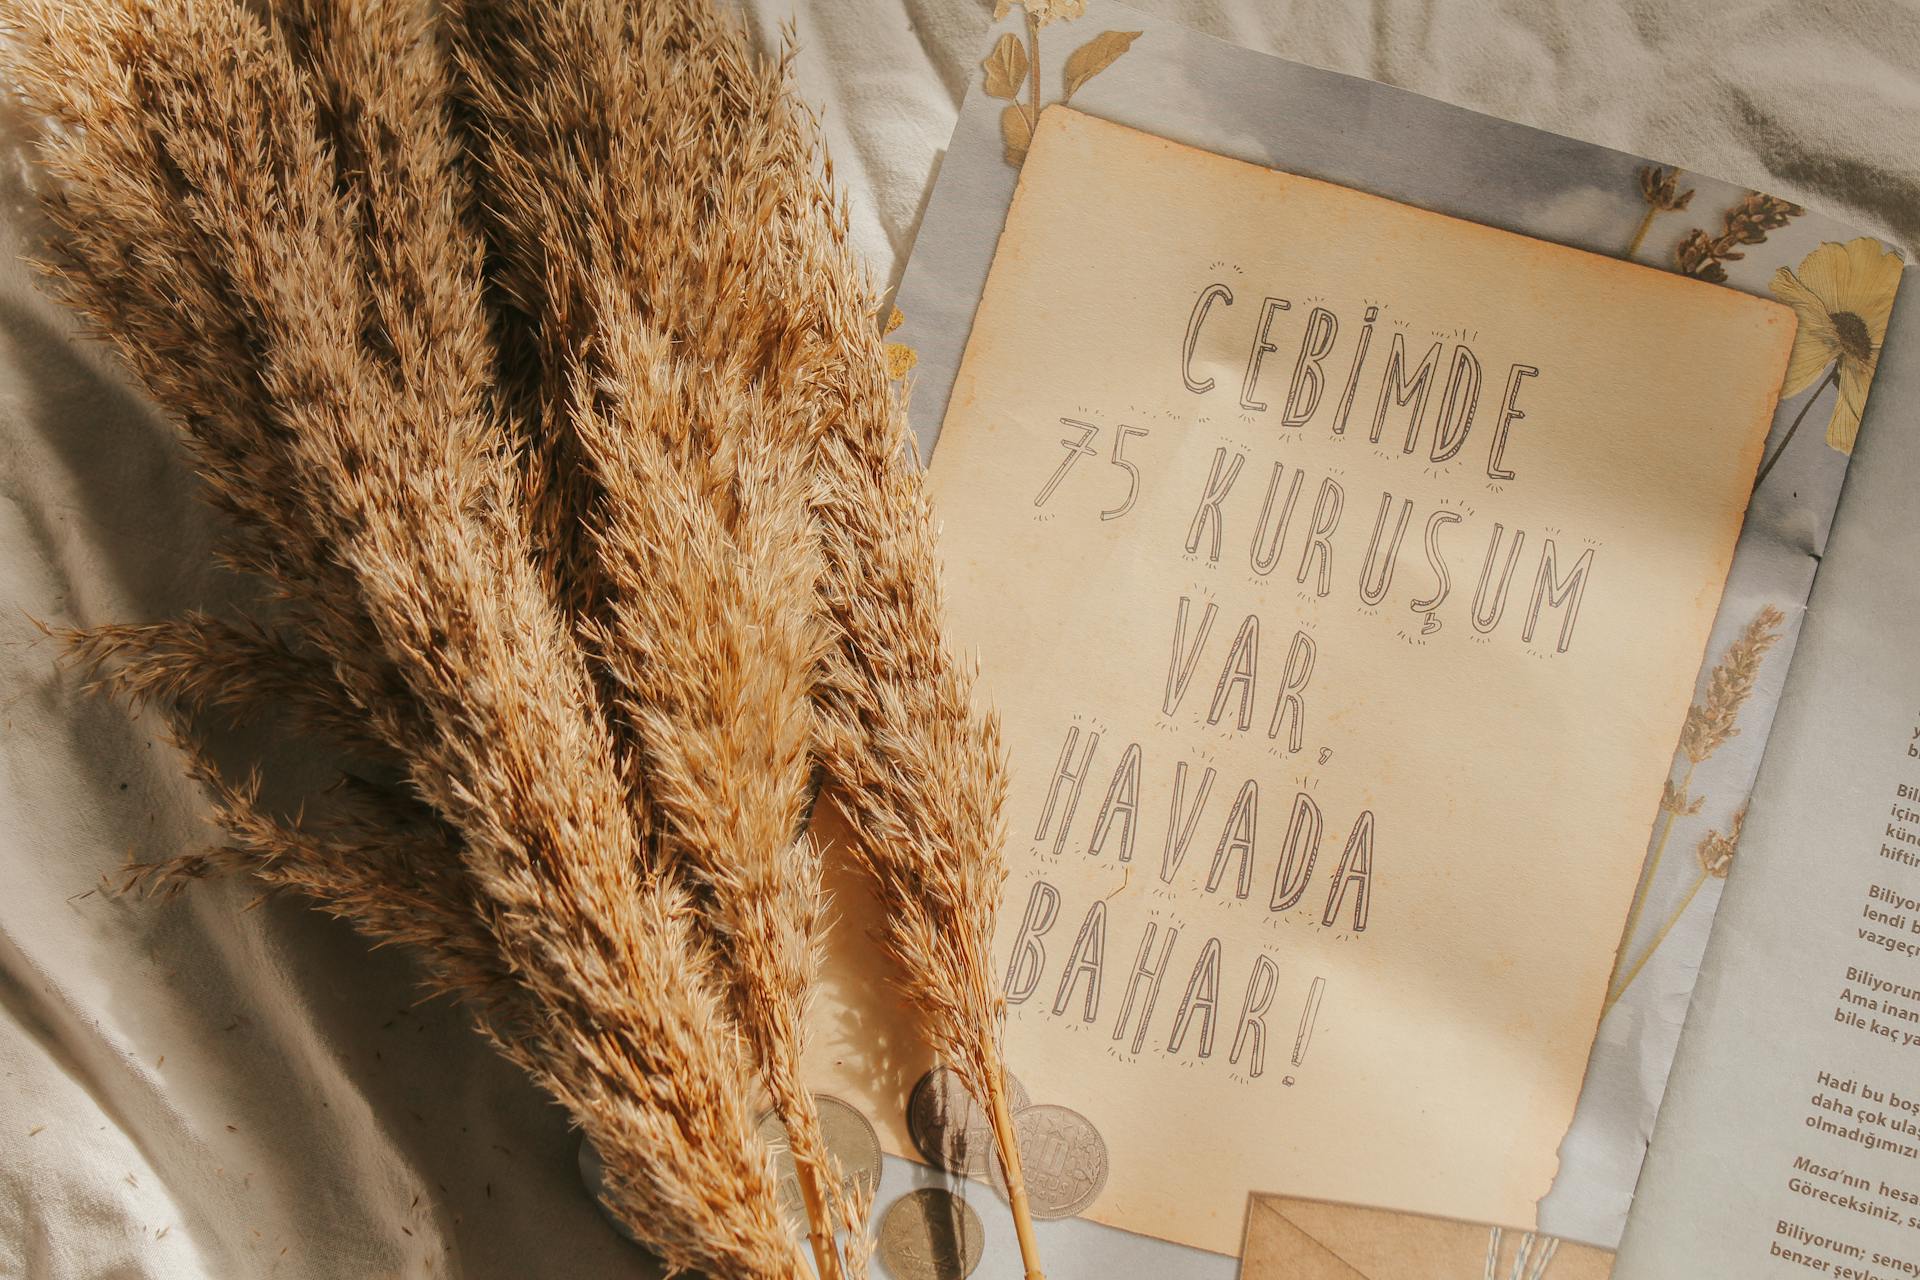 CEBİMDE
75 KURUŞUM
VAR,
HAVADA
BAHAR!
10
KURUŞ
için
hiftin
Biliyor
lendi b
Biliyorum
Ama inan
bile kaç ya
Hadi bu boş
daha çok ulaş
olmadığımızı
Masa'nın hesa
Göreceksiniz, sa
Biliyorum; seney
benzer şeyler